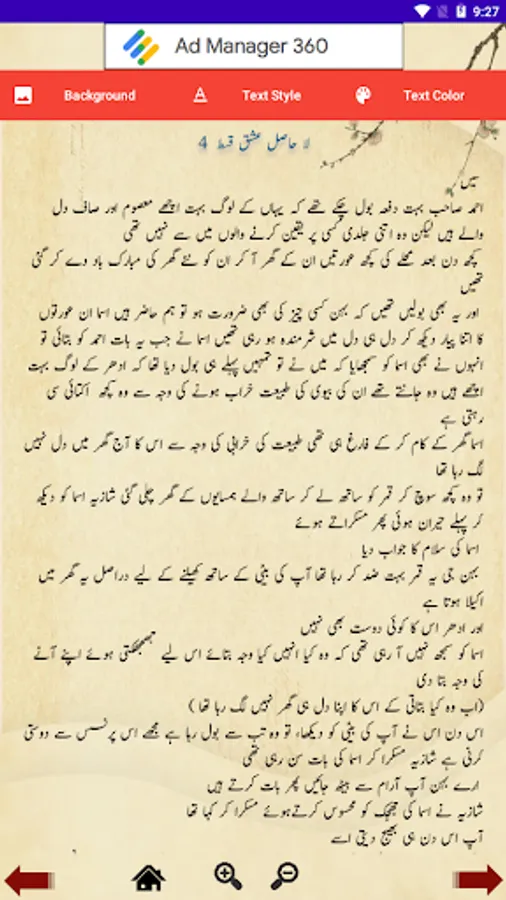 9:27
Ad Manager 360
Background Text Style Text Color
لا حاصل عشق قسط 4
میں
احمد صاحب بہت دفعہ بول چکے تھے کہ یہاں کے لوگ بہت اچھے معصوم اور صاف دل
والے ہیں لیکن وہ اتنی جلدی کسی پر یقین کرنے والوں میں سے نہیں تھی
کچھ دن بعد محلے کی کچھ عورتیں ان کے گھر آ کر ان کو نئے گھر کی مبارک باد دے کر گئی
تھیں
اور یہ بھی بولیں تھیں کہ بہن کسی چیز کی بھی ضرورت ہو تو ہم حاضر ہیں اسما ان عورتوں
کا اتنا پیار دیکھ کر دل ہی دل میں شرمندہ ہو رہی تھیں اسما نے جب یہ بات احمد کو بتائی تو
انہوں نے بھی اسما کو سمجھایا کہ میں نے تو تمہیں پہلے ہی بول دیا تھا کہ ادھر کے لوگ بہت
اچھے ہیں وہ جانتے تھے ان کی بیوی کی طبیعت خراب ہونے کی وجہ سے وہ کچھ اکتائی سی
رہتی ہے
اسما گھر کے کام کر کے فارغ ہی تھی طبیعت کی خرابی کی وجہ سے اس کا آج گھر میں دل نہیں
لگ رہا تھا
تو وہ کچھ سوچ کر قمر کو ساتھ لے کر ساتھ والے ہمسایوں کے گھر چلی گئی شازیہ اسما کو دیکھ
کر پہلے حیران ہوئی پھر مسکراتے ہوئے
اسما کی سلام کا جواب دیا
بہن جی یہ قمر بہت ضد کر رہا تھا آپ کی بیٹی کے ساتھ کھیلنے کے لیے دراصل یہ گھر میں
اکیلا ہوتا ہے
اور ادھر اس کا کوئی دوست بھی نہیں
اسما کو سمجھ نہیں آ رہی تھی کہ وہ کیا انہیں کیا وجہ بتائے اس لیے جھجھکتی ہوئے اپنے آنے
کی وجہ بتا دی
(اب وہ کیا بتاتی کے اس کا اپنا دل ہی گھر نہیں لگ رہا تھا)
اس دن اس نے آپ کی بیٹی کو دیکھا، تو وہ تب سے بول رہا ہے مجھے اس پرنسس سے دوستی
کرنی ہے شازیہ مسکرا کر اسما کی بات سن رہی تھی
ارے بہن آپ آرام سے بیٹھ جائیں پھر بات کرتے ہیں
شازیہ نے اسما کی جھجک کو محسوس کرتےہوئے مسکرا کر کہا تھا
آپ اس دن ہی بھیج دیتی اسے